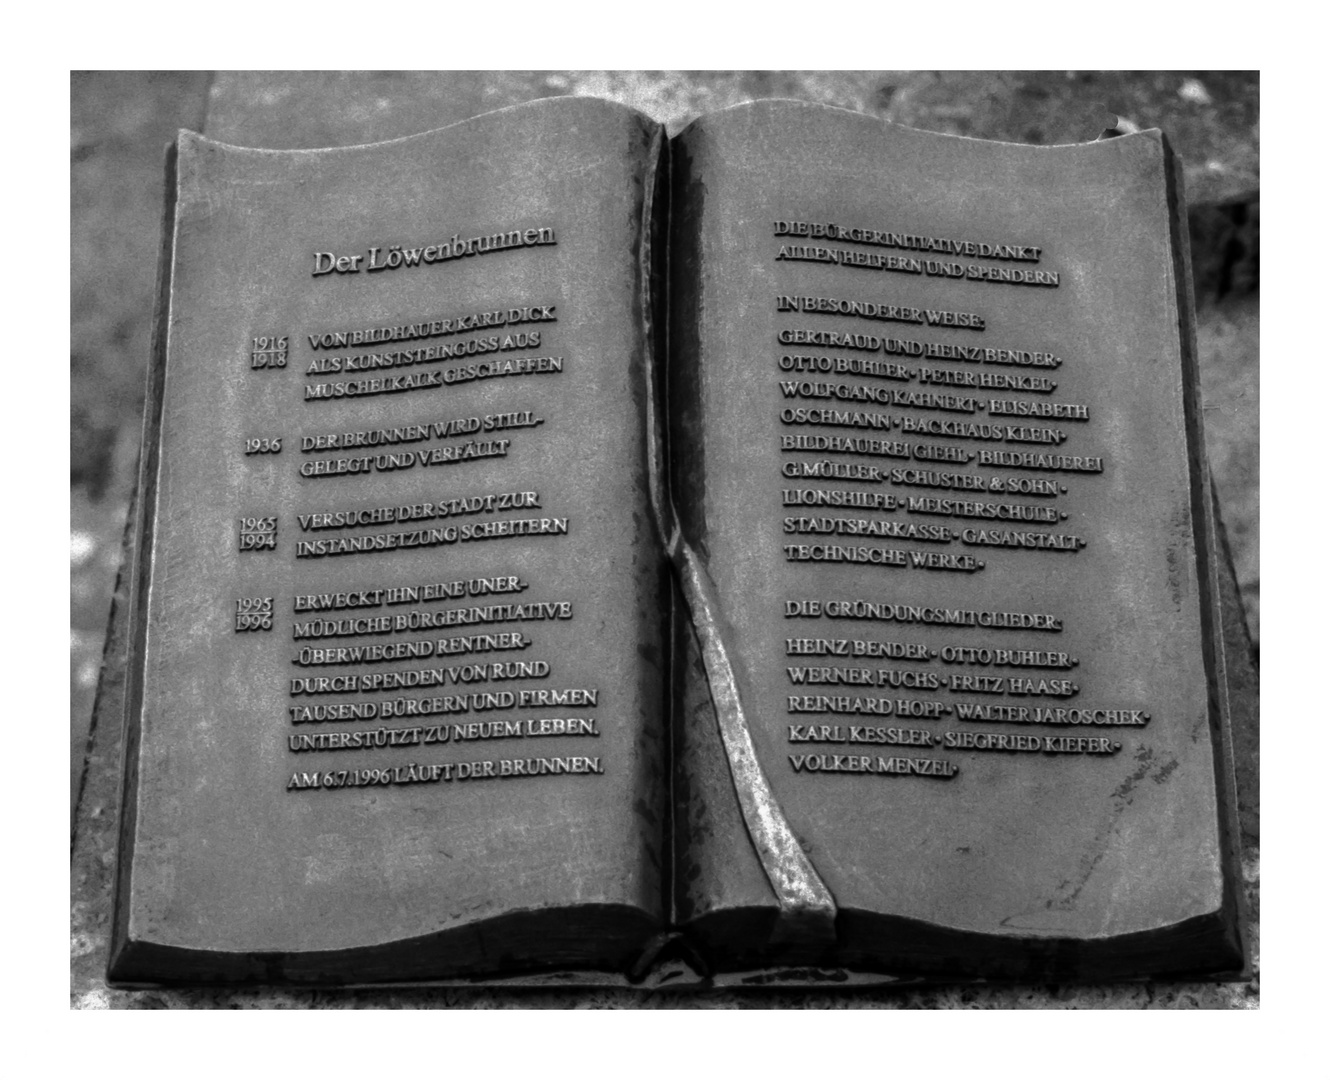 Der Löwenbrunnen
1916
1918
VON BILDHAUER KARL DICK
ALS KUNSTSTEINGUSS AUS
MUSCHELKALK GESCHAFFEN
1936 DER BRUNNEN WIRD STILL-
GELEGT UND VERFÄLLT
1965
1994
VERSUCHE DER STADT ZUR
INSTANDSETZUNG SCHEITERN
1995
1996
ERWECKT IHN EINE UNER-
MÜDLICHE BÜRGERINITIATIVE
-ÜBERWIEGEND RENTNER-
DURCH SPENDEN VON RUND
TAUSEND BÜRGERN UND FIRMEN
UNTERSTÜTZT ZU NEUEM LEBEN.
AM 6.7.1996 LÄUFT DER BRUNNEN.
DIE BÜRGERINITIATIVE DANKT
ALLEN HELFERN UND SPENDERN
IN BESONDERER WEISE:
GERTRAUD UND HEINZ BENDER•
OTTO BUHLER• PETER HENKEL•
WOLFGANG KAHNERT• ELISABETH
OSCHMANN• BACKHAUS KLEIN•
BILDHAUEREI GIEHL• BILDHAUEREI
G.MÜLLER• SCHUSTER & SOHN•
LIONSHILFE• MEISTERSCHULE•
STADTSPARKASSE• GASANSTALT•
TECHNISCHE WERKE•
DIE GRÜNDUNGSMITGLIEDER:
HEINZ BENDER• OTTO BUHLER•
WERNER FUCHS• FRITZ HAASE•
REINHARD HOPP• WALTER JAROSCHEK•
KARL KESSLER• SIEGFRIED KIEFER•
VOLKER MENZEL•